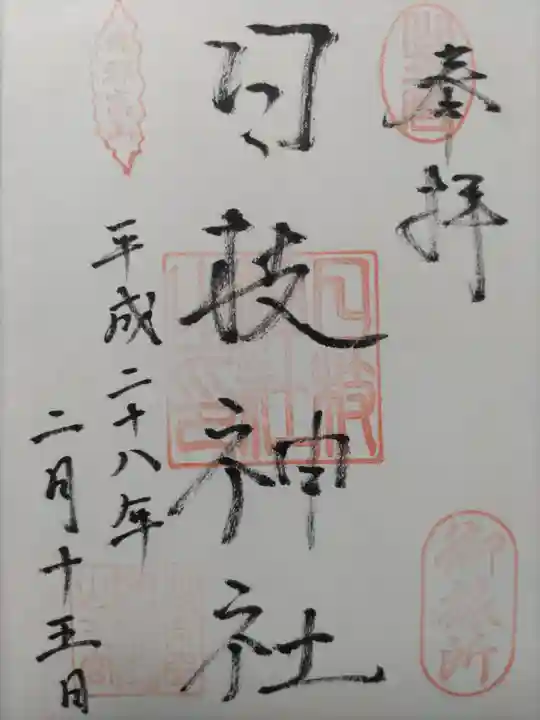 奉拝
日枝神社
平成二十八年
二月十五日
御旅所